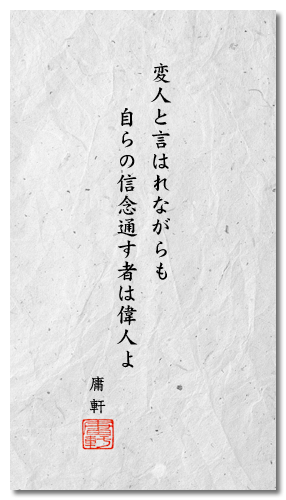 変人と言はれながらも
自らの信念通す者は偉人よ
庸軒